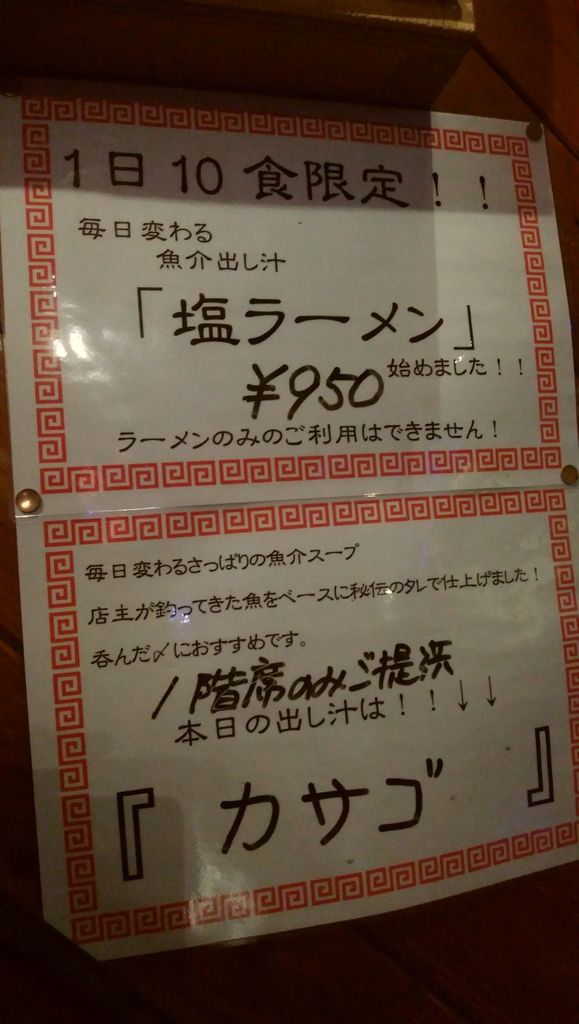 1日10食限定！！
毎日変わる
魚介出し汁
「塩ラーメン」
¥950
始めました！！
ラーメンのみのご利用はできません！
毎日変わるさっぱりの魚介スープ
店主が釣ってきた魚をベースに秘伝のタレで仕上げました！
呑んだ〆におすすめです。
1階席のみご提浜
本日の出し汁は！！↓↓
『カサゴ』